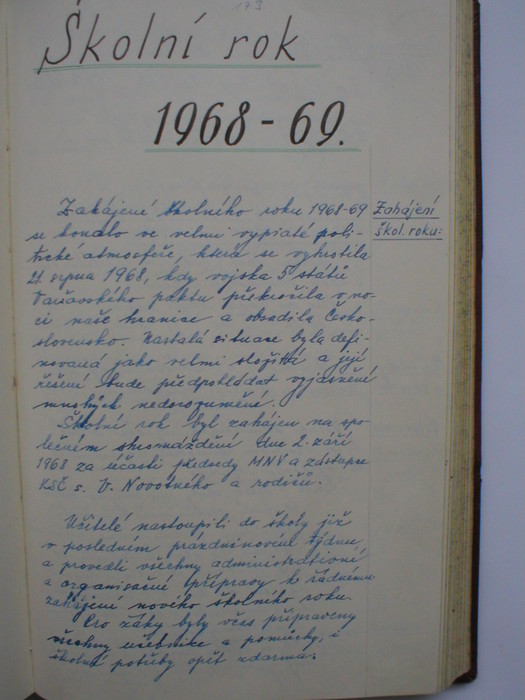 173
Školní rok
1968 - 69.
Zahájení školního roku 1968-69
se konalo ve velmi vypiaté poli-
tické atmosfeře, která se vyhrotila
21. srpna 1968, kdy vojska 5 států
Varšavského paktu překročila v no-
ci naše hranice a obsadila Česko-
slovensko. Nastalá situace byla defi-
novaná jako velmi složitá a její
řešení bude předpokládat vyjasnění
mnohých nedorozumění.
Školní rok byl zahájen na spo-
lečném shromáždění dne 2. září
1968 za účasti předsedy MNV a zástupce
KSČ s. V. Novotného a rodičů.
Učitelé nastoupili do školy již
v posledním prázdninovém týdnu
a provedli všechny administrativní
a organisační přípravy k řádnému
zahájení nového školního roku.
Pro žáky byly včas připraveny
všechny učebnice a pomůcky, i
školní potřeby opět zdarma.
Zahájení
škol. roku: